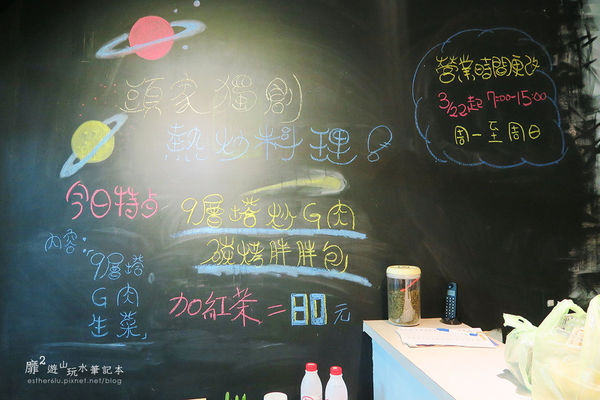 頭家獨創
熱炒料理
今日特点
9層塔炒G肉
碳烤胖胖包
內容:
9層塔
G肉
生菜
加紅茶=80元
營業時間更改
3/22起 7:00~15:00
周一至周日
靡²遊山玩水筆記本
esther6lu.pixnet.net/blog